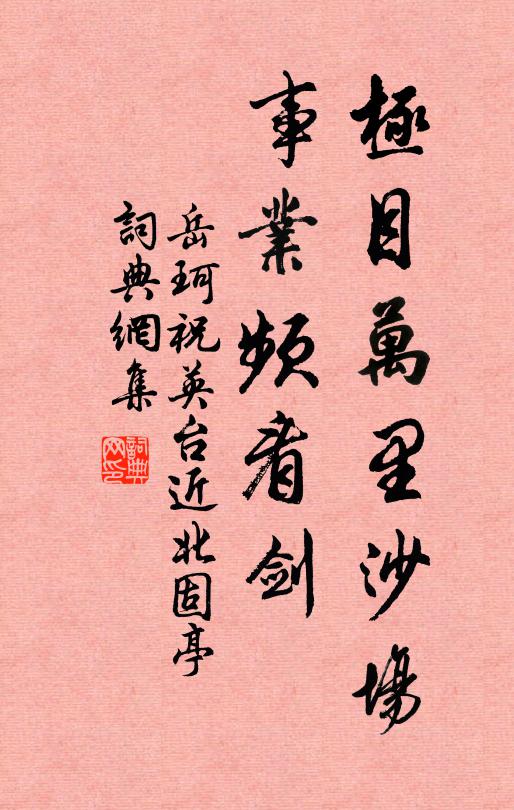 極目萬里沙場
事業頻看劍
岳珂祝英台近北固亭
詞典網集
詞典
网印